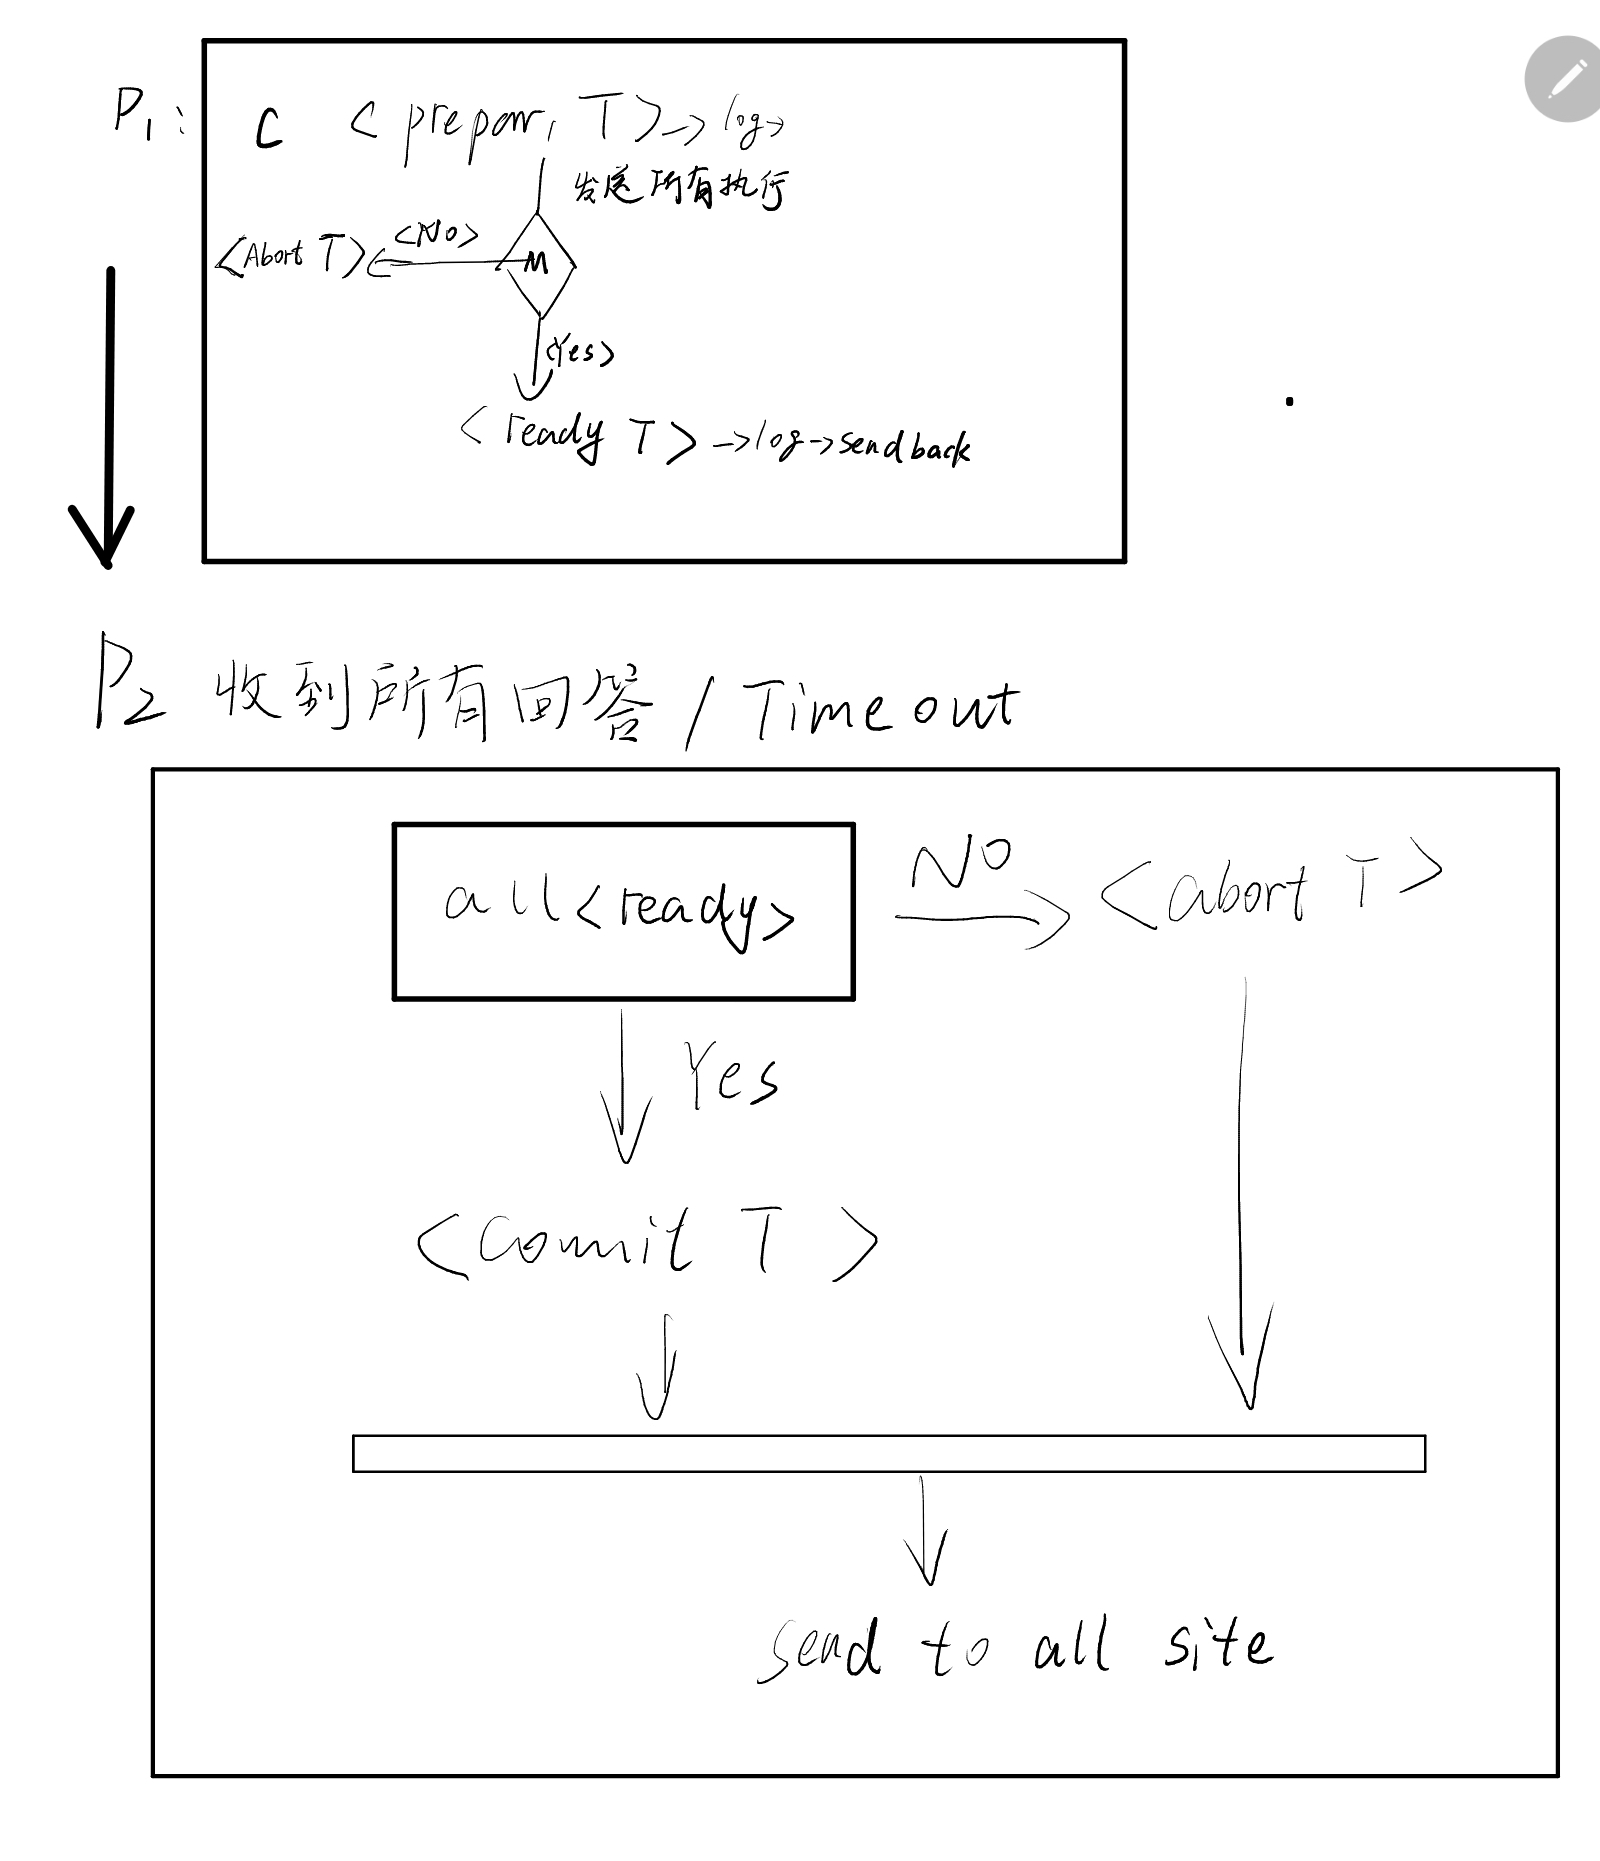 P1: C <prepar, T> -> log ->
发送所有执行
<Abort T> <No> M
<Yes>
<ready T> -> log -> send back
P2 收到所有回答 / Timeout
all <ready> NO <abort T>
Yes
<Commit T >
send to all site